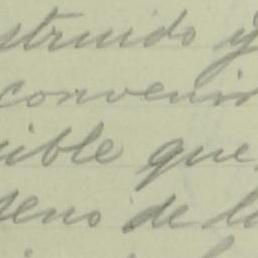 struido y
convenir
ible que
seno de la